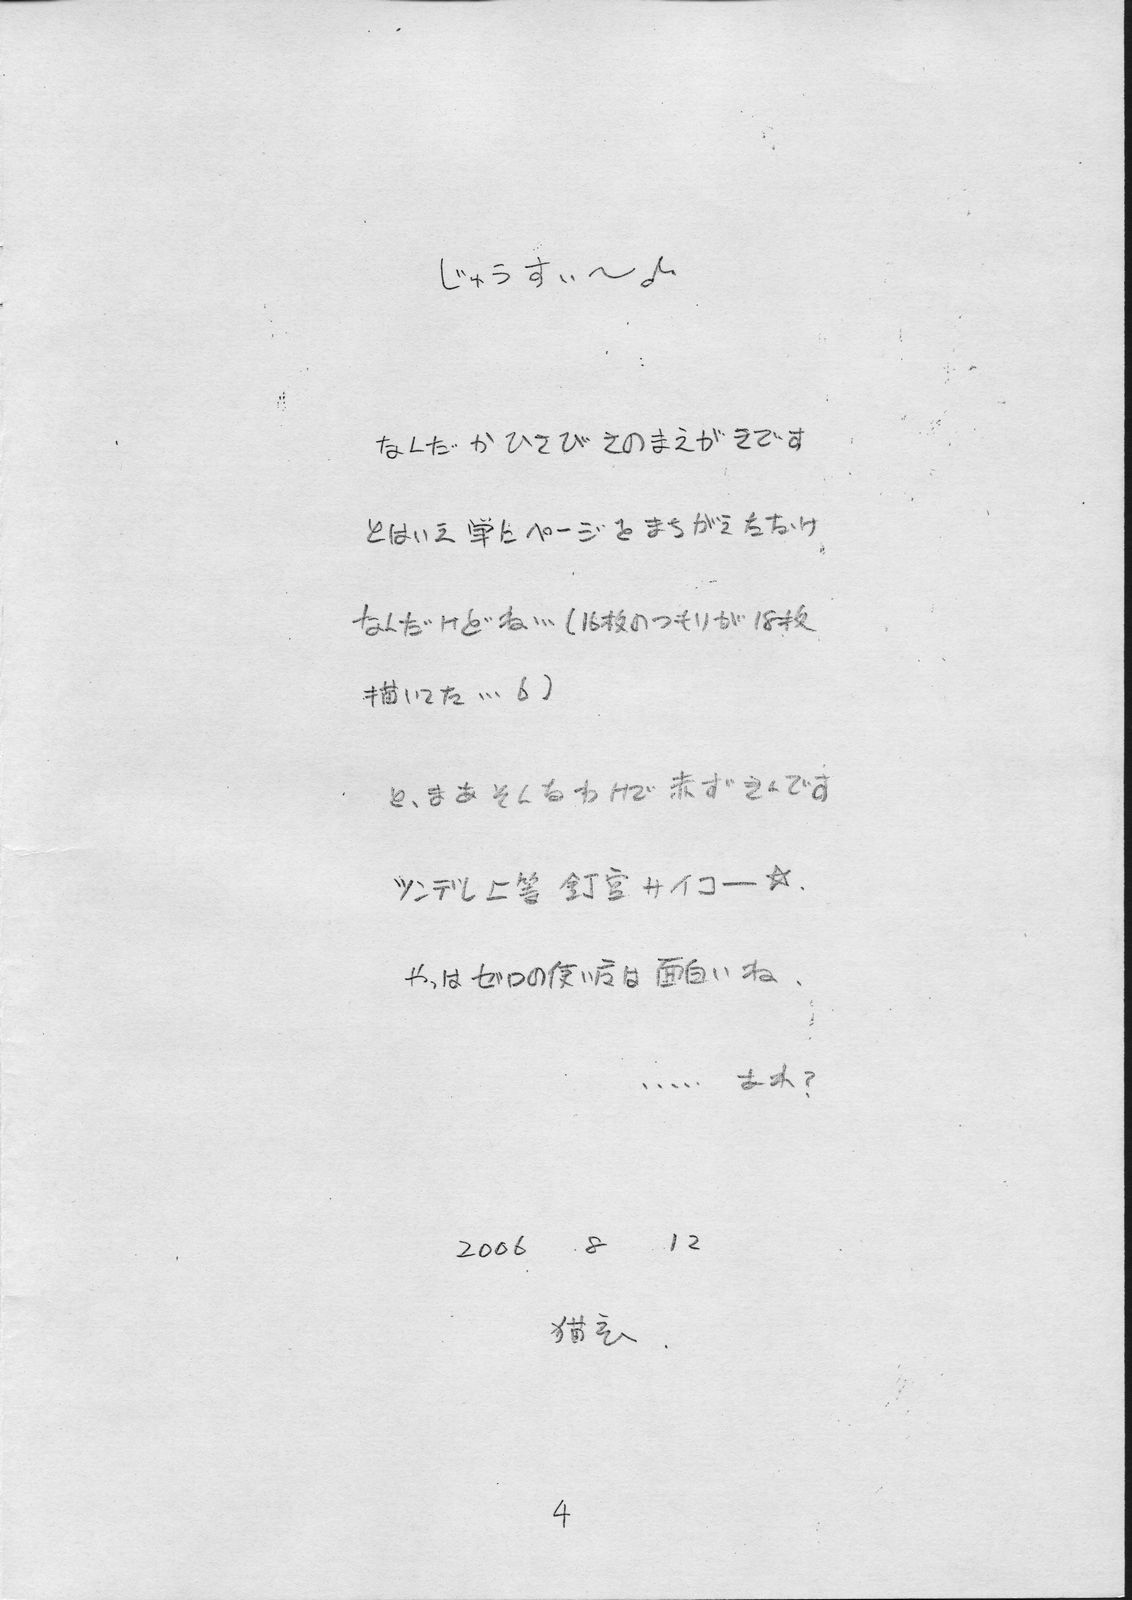 じゅうすぃ〜♪
なんだかひさびさのまえがきです
とはいえ単にページをまちがえただけ
なんだけどね…(16枚のつもりが18枚
描いてた…6)
と、まあそんなわけで赤ずきんです
ツンデレ上等 釘宮サイコー☆.
やっぱゼロの使い魔は面白いね、
…‥ あれ?
2006 8 12
猫玄.
4